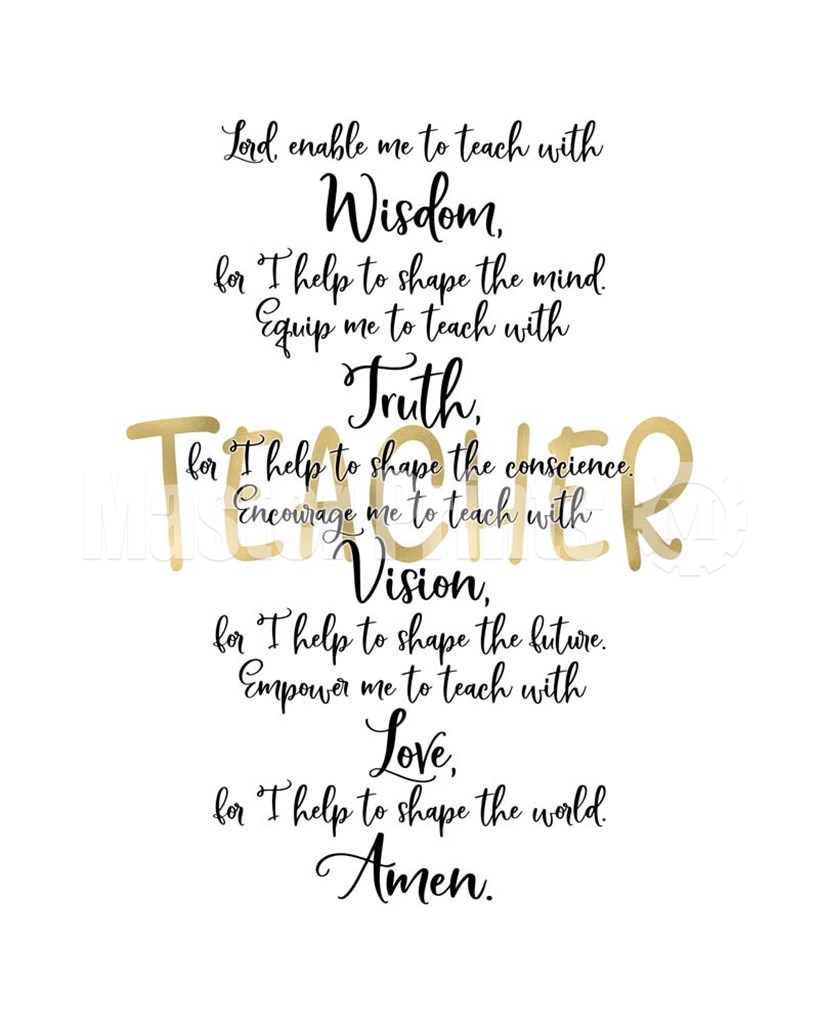 Lord, enable me to teach with
Wisdom,
for I help to shape the mind.
Equip me to teach with
Truth,
TEACHER
for I help to shape the conscience.
Encourage me to teach with
Vision,
for I help to shape the future.
Empower me to teach with
Love,
for I help to shape the world.
Amen.